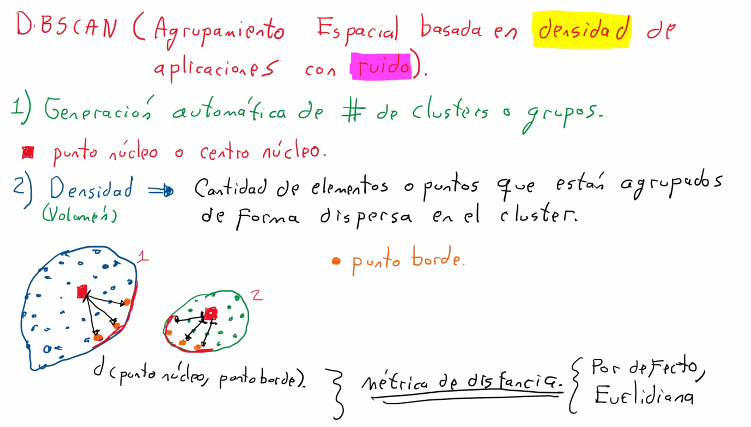 DBSCAN (Agrupamiento Espacial basada en densidad de
aplicaciones con ruido).
1) Generación automática de # de clusters o grupos.
punto núcleo o centro núcleo.
2) Densidad ⇒ Cantidad de elementos o puntos que están agrupados
(Volumen) de forma dispersa en el cluster.
1
punto borde.
2
d(punto núcleo, punto borde). } métrica de distancia. { Por defecto,
Euclidiana